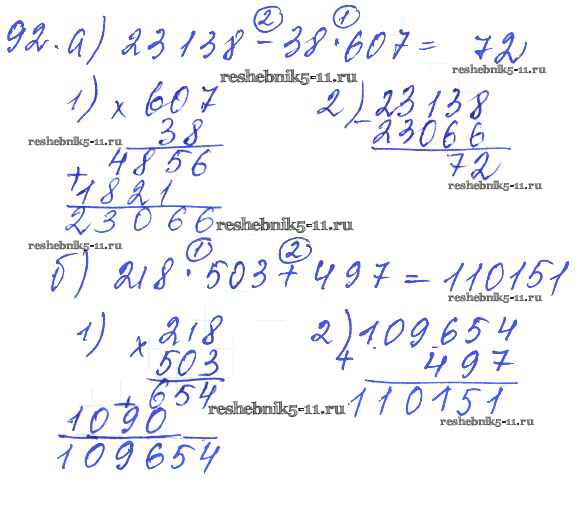 ② ①
92. а) 23138 - 38 · 607 = 72
reshebnik5-11.ru reshebnik5-11.ru
1) × 607 2) - 23138
reshebnik5-11.ru 38 23066 reshebnik5-11.ru
+ 4856 72
1821 reshebnik5-11.ru
23066 reshebnik5-11.ru
reshebnik5-11.ru
① ②
б) 218 · 503 + 497 = 110151
reshebnik5-11.ru
1) × 218 2) + 109654
503 497
+ 654 110151
1090 reshebnik5-11.ru reshebnik5-11.ru
109654